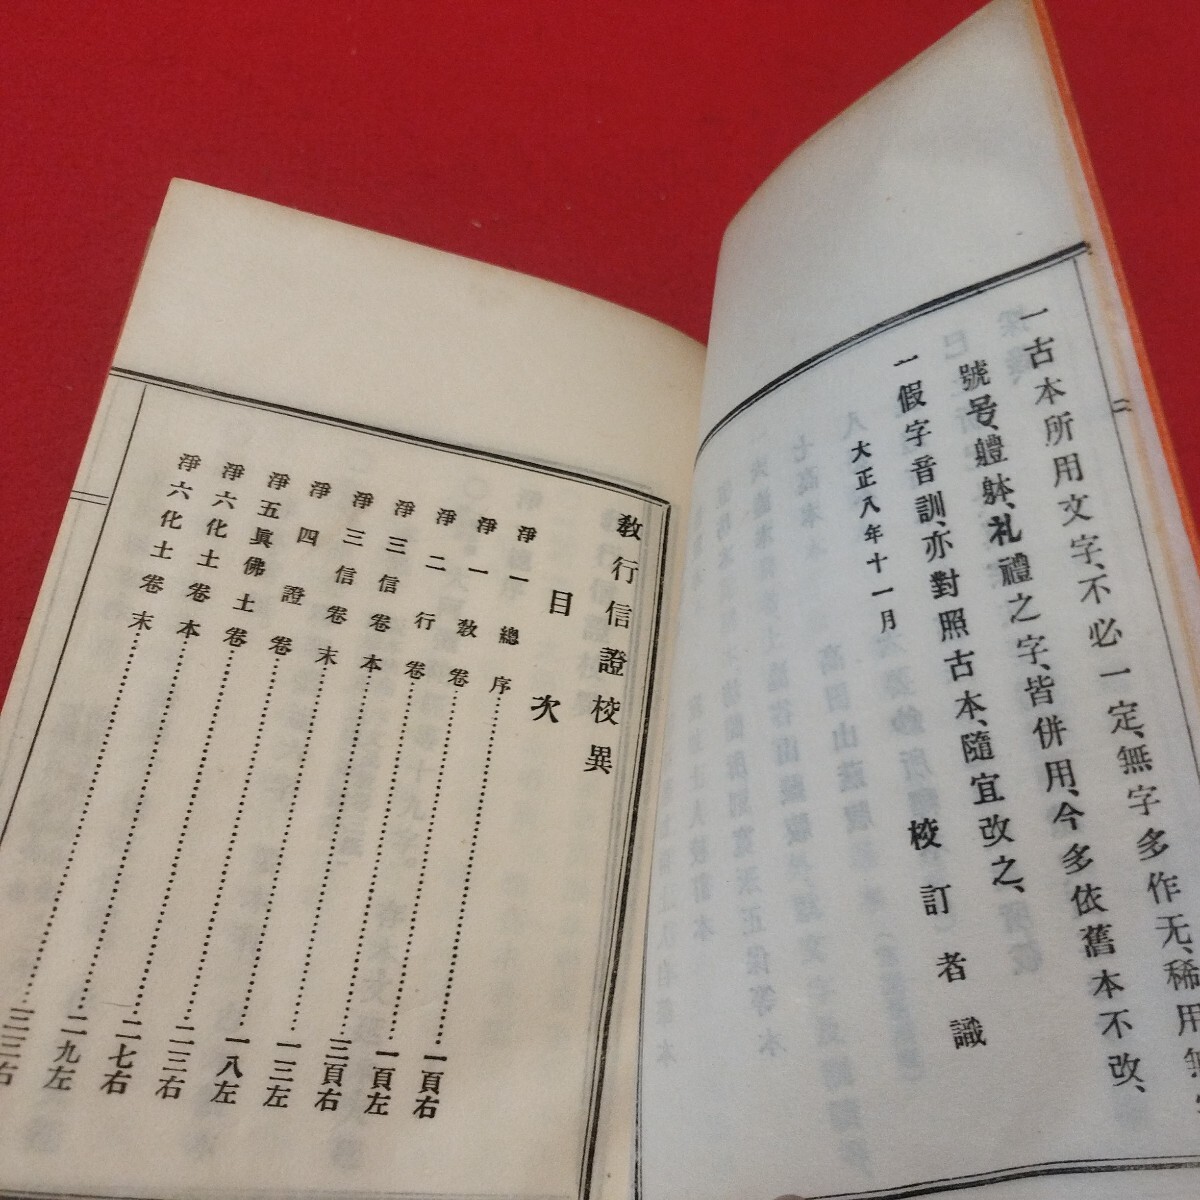 二
一古本所用文字、不必一定、無字多作无、稀用無、
號号、軆躰、礼禮之字、皆併用、今多依舊本不改、
一假字音訓、亦對照古本、隨宜改之、
大正八年十一月
校訂者識
教行信證校異
目次
淨一總序…………一頁右
淨一教卷…………一頁左
淨二行卷…………三頁右
淨三信卷本…………一三左
淨三信卷末…………一八左
淨四證卷…………二三右
淨五眞佛土卷…………二七右
淨六化土卷本…………二九左
淨六化土卷末…………三三右